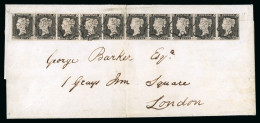 George Barker Esqr.
1 Grays Inn Square
London